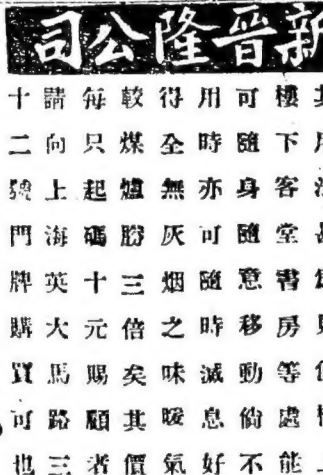 新晋隆公司
樓下客堂書房等處能
可隨身隨意移動倘不
用時亦可隨時滅息好
得全無灰烟之味暖氣
較煤爐勝三倍矣其價
每只起碼十元賜顧者
請向上海英大馬路三
十二號門牌購買可也